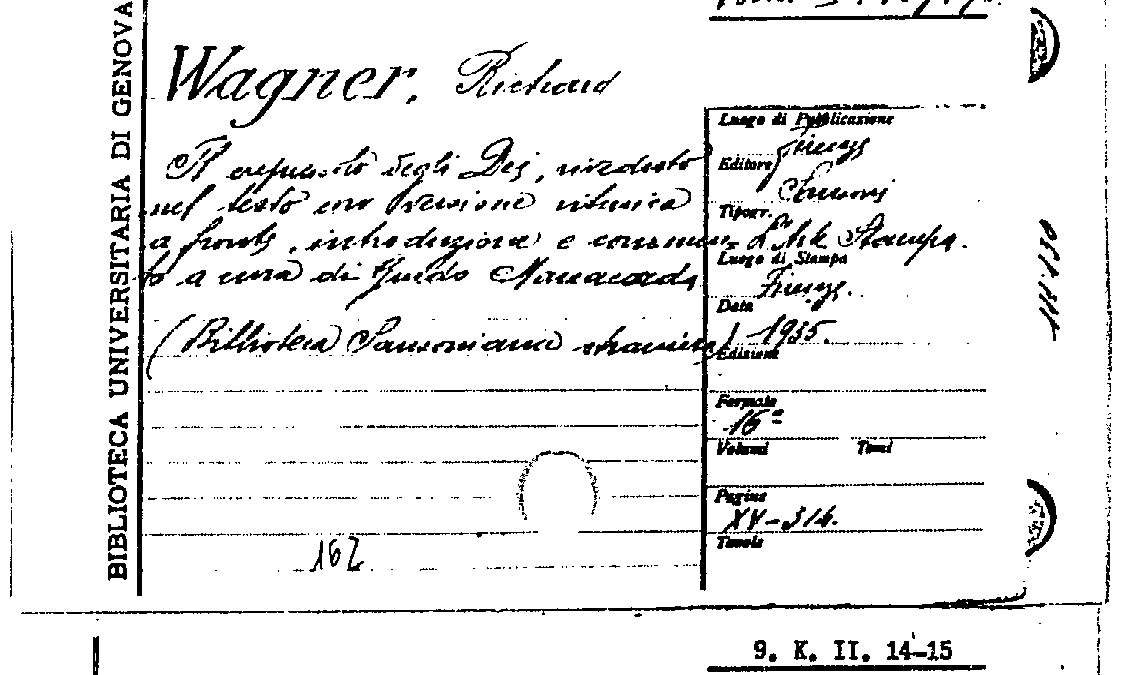 BIBLIOTECA UNIVERSITARIA DI GENOVA
Wagner, Richard
Il crepuscolo degli Dei, riveduto
nel testo con versione ritmica
a fronte, introduzione e commen-
to a cura di Guido Manacorda
(Biblioteca Sansoniana straniera)
162
Luogo di Pubblicazione
Firenze
Editore
Sansoni
Tipogr.
Stampa.
Luogo di Stampa
Firenze.
Data
1935.
Edizione
Formato
16°
Volumi Tomi
Pagine
XV-314.
Tavole
9. K. II. 14-15